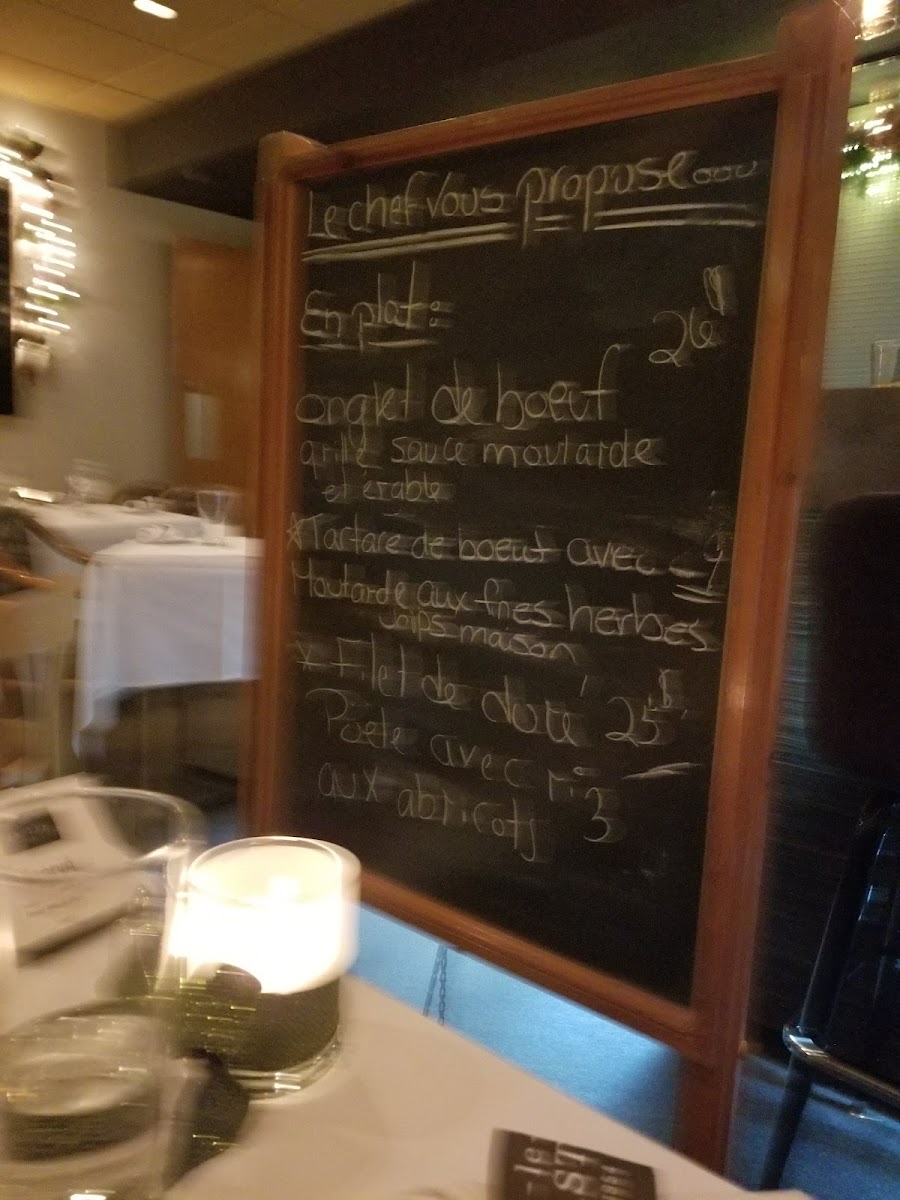 Le chef Vous propose....
En plat:
26$
onglet de boeuf
grillé sauce moutarde
et érable
*Tartare de boeuf avec
Moutarde aux fnes herbes
maison
* Filet de doré 25$
Poêlé avec
aux abricots